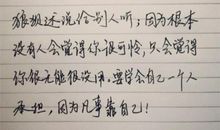 狼狈述说给别人听；因为根本
没有人会觉得你很可怜，只会觉得
你很无能很没用。要学会自己一个人
承担，因为凡事靠自己！